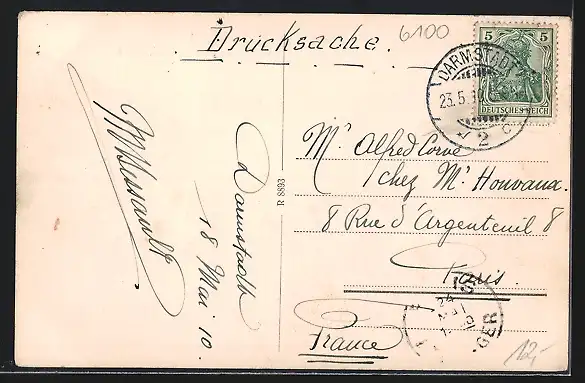 Drucksache.
6100
5 5
DEUTSCHES REICH
DARMSTADT
23.5.10
* 2 c
Mr Alfred Corve
chez Mr Houvaux.
8 Rue d'Argenteuil 8
Paris.
France
Darmstadt
18 Mai 10.
R 8893
24
GER
12,-